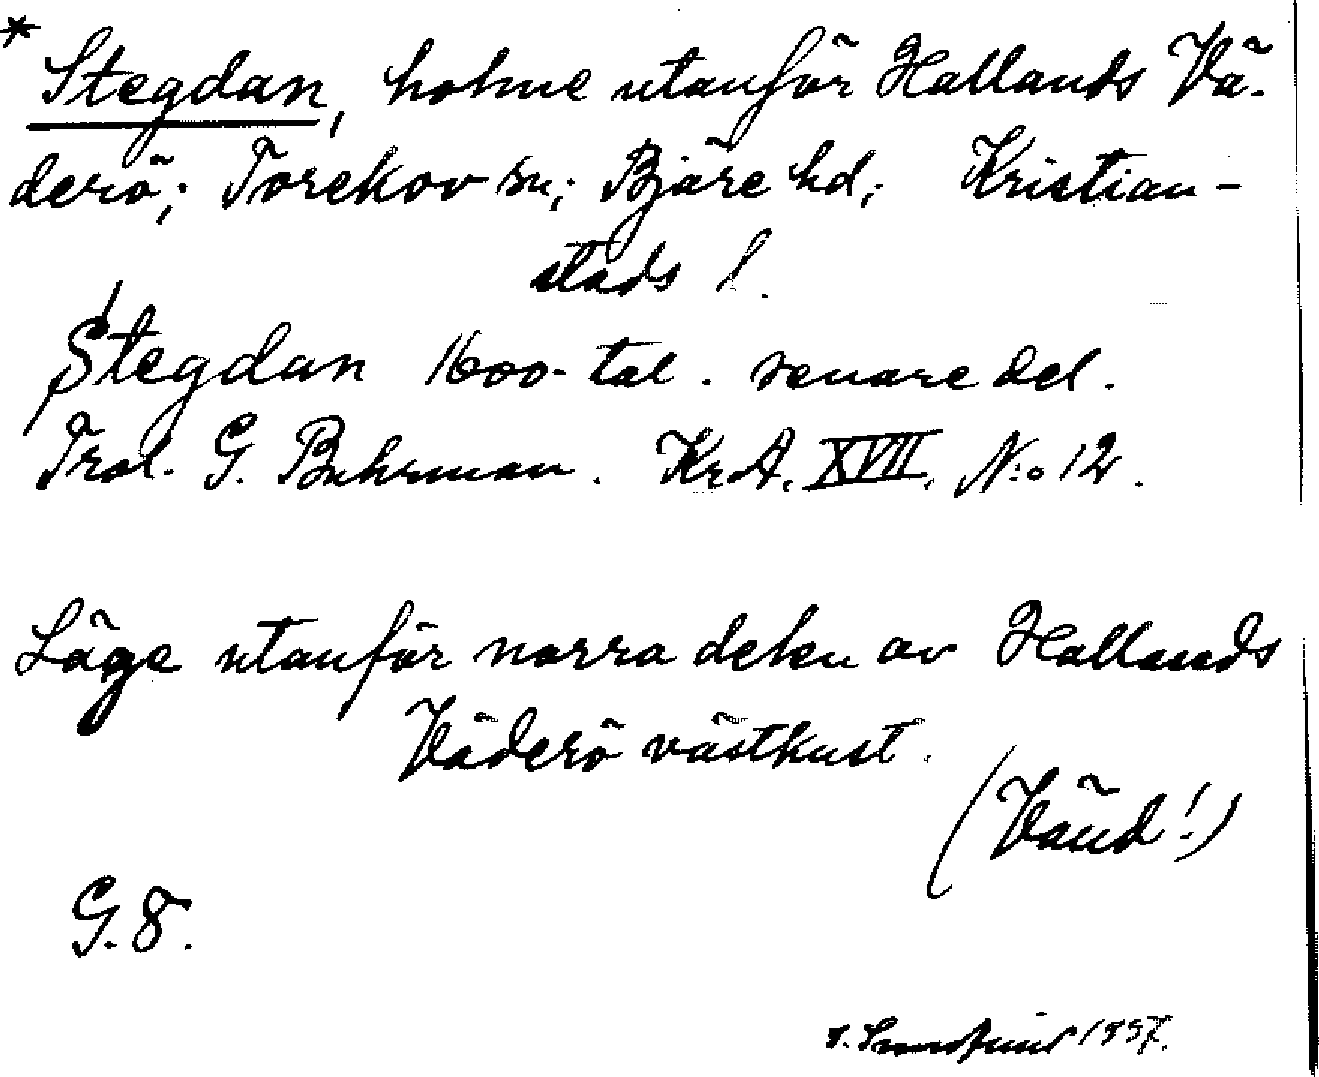 * Stegdan, holme utanför Hallands Vä-
derö; Torekov sn; Bjäre hd; Kristian-
stads l.
Stegdan 1600-tal. senare del.
Trol. G. Buhrman. Kr.A. XVII, N:o 12.
Läge utanför norra delen av Hallands
Väderö västkust.
(Vänd!)
G. 8.
1957.